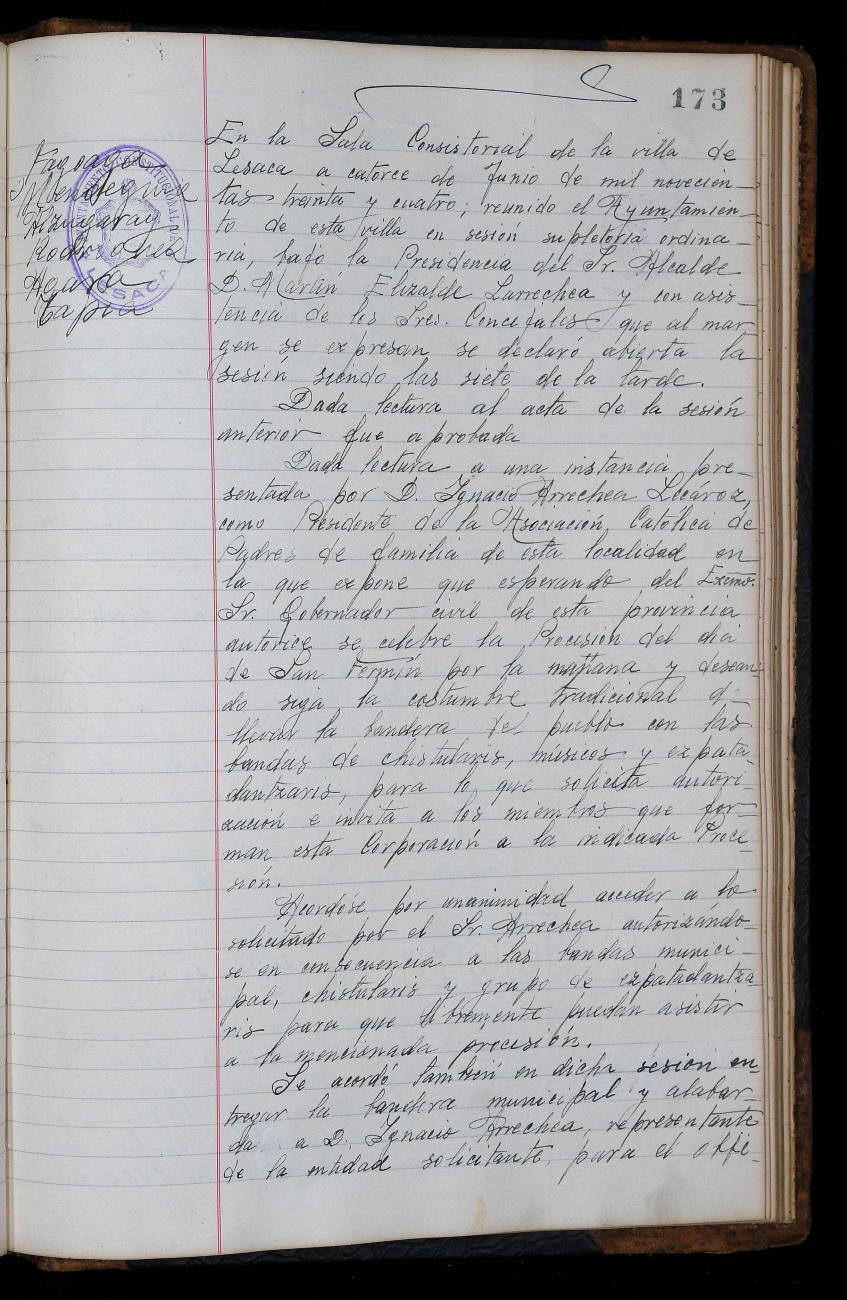 173
Fagoaga
Mendeguia
Alzugaray
Rodriguez
Agara
Tapia
AYUNTAMIENTO CONSTITUCIONAL DE
LESACA
En la Sala Consistorial de la villa de
Lesaca a catorce de Junio de mil novecien-
tas treinta y cuatro; reunido el Ayuntamien-
to de esta villa en sesión supletoria ordina-
ria, bajo la Presidencia del Sr. Alcalde
D. Martín Elizalde Larrechea y con asis-
tencia de los Sres. Concejales que al mar
gen se expresan se declaró abierta la
sesión siendo las siete de la tarde.
Dada lectura al acta de la sesión
anterior fue aprobada
Dada lectura a una instancia pre-
sentada por D. Ignacio Arrechea Lecároz,
como Presidente de la Asociación Católica de
Padres de familia de esta localidad en
la que expone que esperando del Excmo.
Sr. Gobernador civil de esta provincia
autorice se celebre la Procesión del dia
de San Fermín por la mañana y desean-
do siga la costumbre tradicional d-
llevar la bandera del pueblo con las
bandas de chistularis, músicos y ezpata-
dantzaris, para lo que solicita autori-
zación e invita a los miembros que for-
man esta Corporación a la indicada Proce-
sión.
Acordóse por unanimidad acceder a lo
solicitado por el Sr. Arrechea autorizándo-
se en consecuencia a las bandas munici-
pal, chistularis y grupo de ezpatadantza-
ris para que libremente puedan asistir
a la mencionada procesión.
Se acordó también en dicha sesión en-
tregar la bandera municipal y alabar-
da a D. Ignacio Arrechea, representante
de la entidad solicitante, para el obje-